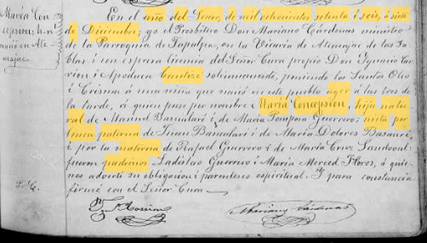 María Con
cepcion, hi
na en Ate
majac.
En el año del Señor, de mil ochocientos setenta i seis, a seis
de Diciembre; yo el Presbítero Don Mariano Cárdenas ministro
de la Parroquia de Tapalpa, en la Vicaría de Atemajac de las Ta
blas i con espresa licencia del Señor Cura propio Don Ignacio
i Apodaca bautisé solemnemente, poniendo los Santos Oleo
i Crisma á una niña que nació en este pueblo ayer á las tres de
la tarde, á quien puse por nombre María Concepsion, hija natu
ral de Manuel i de María Guerrero; nieta por
linea paterna de Juan i de María Dolores
i por la materna de Rafael Guerrero i de María Cruz Sandoval
fueron padrinos Ladislao Guerrero i María Merced Flores, á quie
nes advertí su obligacion i parentesco espiritual. I para constancia
firmé con el Señor Cura
Mariano Cárdenas